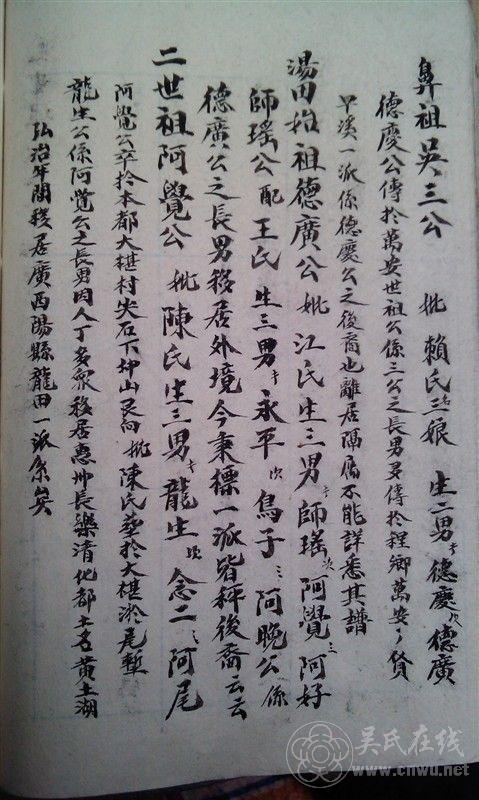 鼻祖吳三公 妣 賴氏三娘 生二男長德慶次德廣
德慶公傳於萬安世祖公係三公之長男另傳於程鄉萬安
溪一派係德慶公之後裔也離居隔屬不能詳悉其譜
湯田始祖德廣公 妣 江氏生三男長師瑤次阿覺三阿好
師瑤公配王氏生三男長永平次鳥子三阿晚公係
德廣公之長男移居外境今秉標一派皆 後裔云云
二世祖阿覺公 妣 陳氏生三男長龍生次念二三阿尾
阿覺公卒於本都大椹村尖石下 山艮向 妣 陳氏葬於大椹 尾
龍生公係阿覺公之長男因人丁多衆移居惠州長樂清化都土名黄土湖
弘治年間移居廣西陽縣龍田一派系矣
吴氏在线
www.cnwu.net